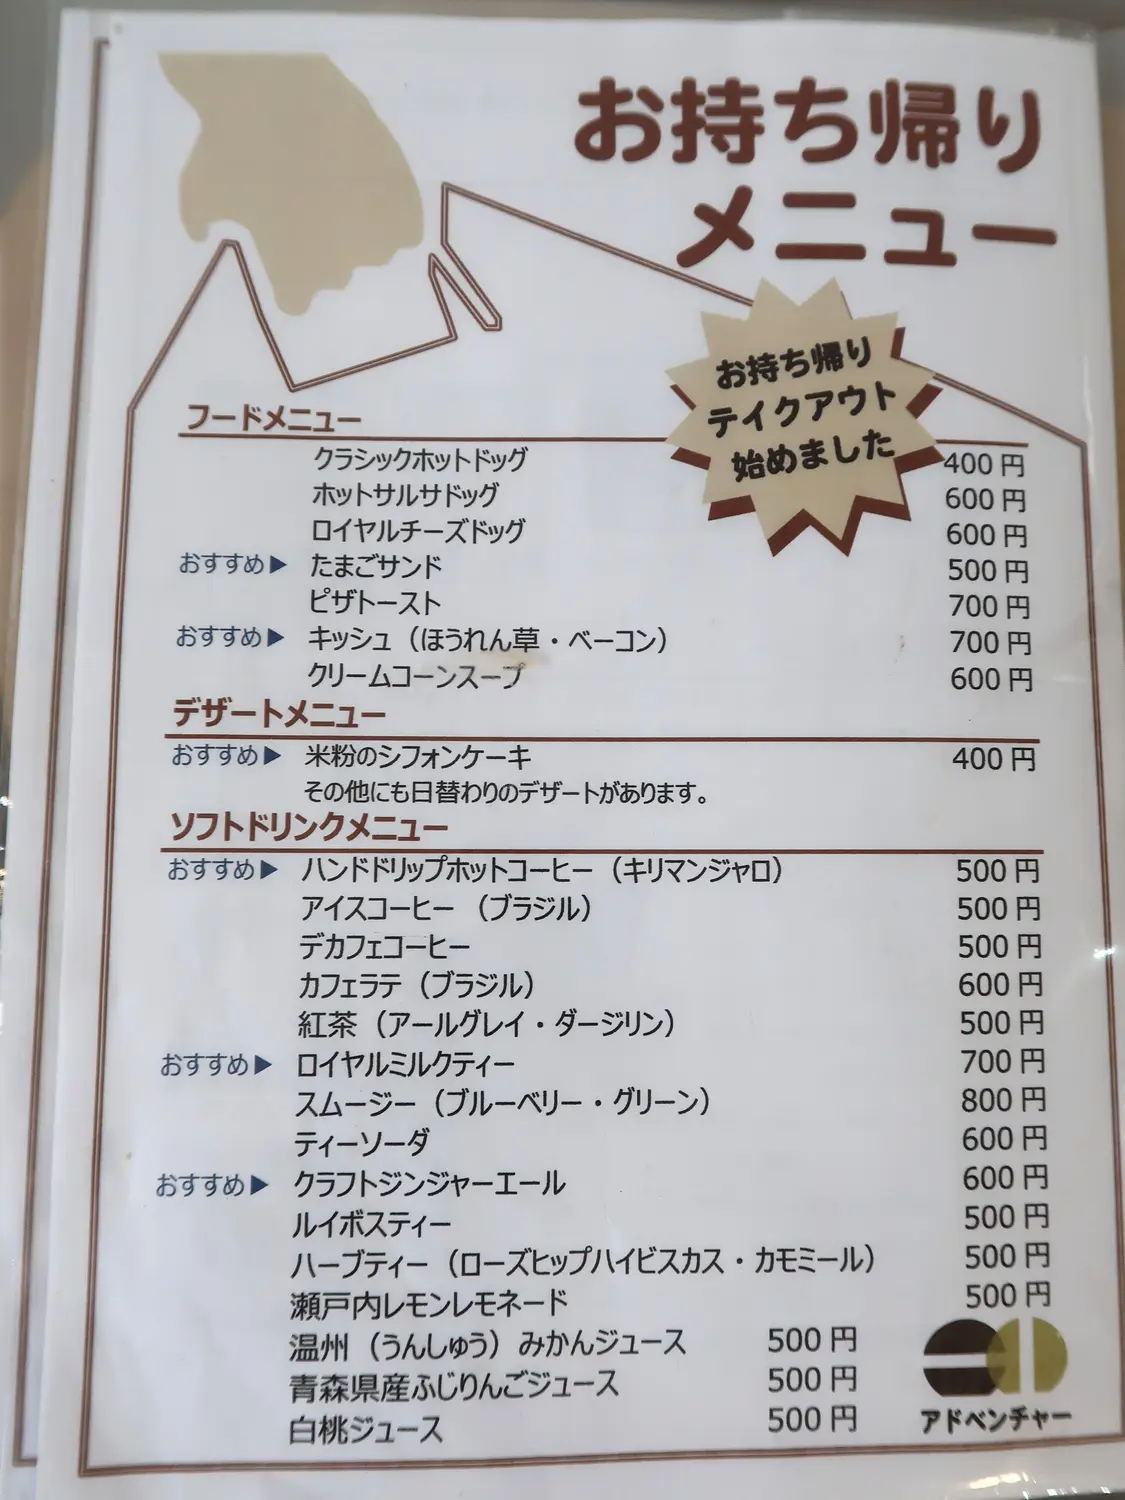 お持ち帰り
メニュー
お持ち帰り
テイクアウト
始めました
フードメニュー
クラシックホットドッグ 400円
ホットサルサドッグ 600円
ロイヤルチーズドッグ 600円
おすすめ▶ たまごサンド 500円
ピザトースト 700円
おすすめ▶ キッシュ（ほうれん草・ベーコン） 700円
クリームコーンスープ 600円
デザートメニュー
おすすめ▶ 米粉のシフォンケーキ 400円
その他にも日替わりのデザートがあります。
ソフトドリンクメニュー
おすすめ▶ ハンドドリップホットコーヒー（キリマンジャロ） 500円
アイスコーヒー（ブラジル） 500円
デカフェコーヒー 500円
カフェラテ（ブラジル） 600円
紅茶（アールグレイ・ダージリン） 500円
おすすめ▶ ロイヤルミルクティー 700円
スムージー（ブルーベリー・グリーン） 800円
ティーソーダ 600円
おすすめ▶ クラフトジンジャーエール 600円
ルイボスティー 500円
ハーブティー（ローズヒップハイビスカス・カモミール） 500円
瀬戸内レモンレモネード 500円
温州（うんしゅう）みかんジュース 500円
青森県産ふじりんごジュース 500円
白桃ジュース 500円
アドベンチャー